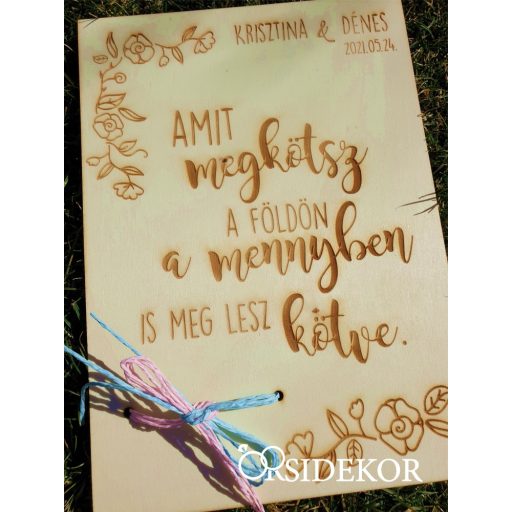 KRISZTINA & DÉNES
2021.05.24.
AMIT
megkötsz
A FÖLDÖN
a mennyben
IS MEG LESZ kötve.
ORSIDEKOR